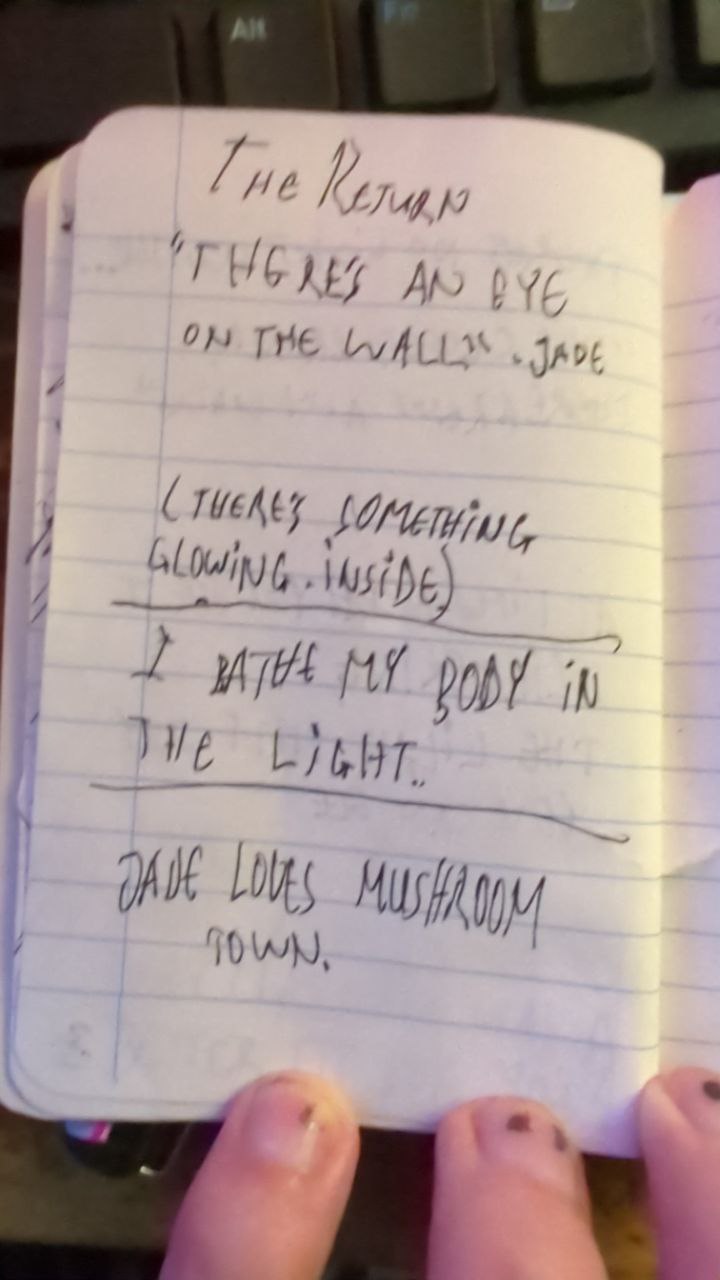 THE RETURN
"THERE'S AN EYE
ON THE WALL" . JADE
(THERE'S SOMETHING
GLOWING . INSIDE)
I BATHE MY BODY IN
THE LIGHT..
JADE LOVES MUSHROOM
TOWN.
Alt
Fn